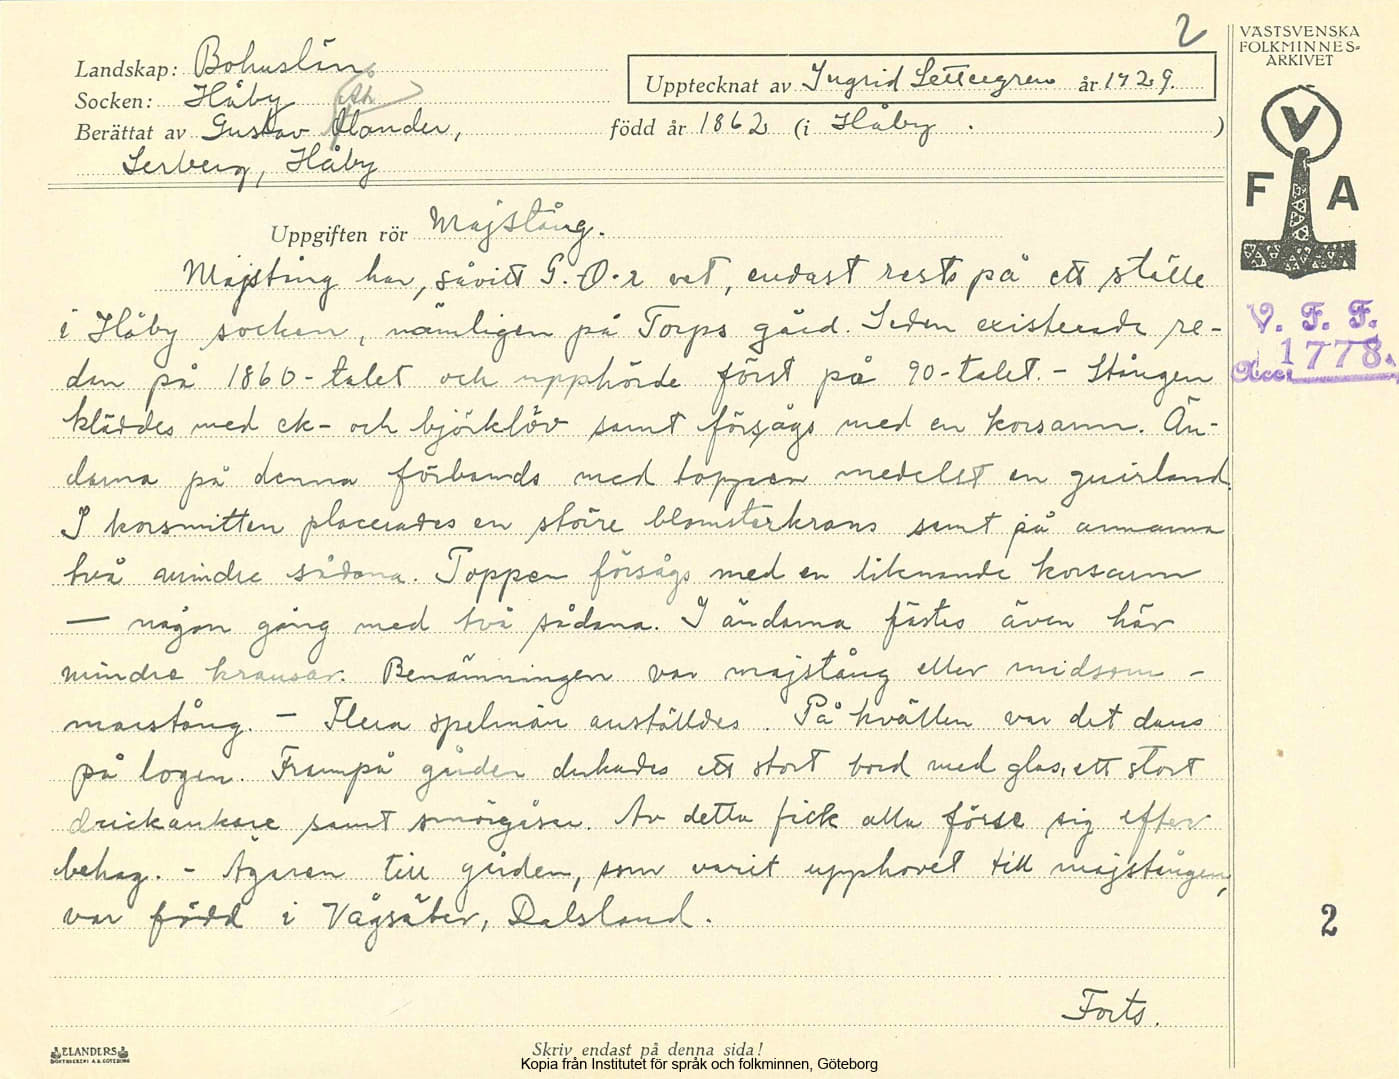 2
VÄSTSVENSKA
FOLKMINNES-
ARKIVET
Landskap: Bohuslän
Socken: Håby
Upptecknat av Ingrid Settergren år 1929.
Berättat av Gustav Olander, född år 1862 (i Håby. )
Serberg, Håby
V
F A
Uppgiften rör Majstång.
Majstång har, såvitt G. O-r vet, endast rests på ett ställe
i Håby socken, nämligen på Torps gård. Seden existerade re-
dan på 1860-talet och upphörde först på 90-talet. - Stången
kläddes med ek- och björklöv samt försågs med en korsarm. Än-
darna på denna förbands med toppen medelst en guirland.
I korsmitten placerades en större blomsterkrans samt på armarna
två mindre sådana. Toppen försågs med en liknande korsarm
— någon gång med två sådana. I ändarna fästes även här
mindre kransar. Benämningen var majstång eller midsom-
marstång. - Flera spelmän anställdes. På kvällen var det dans
på logen. Frampå gården dukades ett stort bord med glas, ett stort
drickankare samt smörgåsar. Av detta fick alla förse sig efter
behag. - Ägaren till gården, som varit upphovet till majstången,
var född i Vågsäter, Dalsland.
Forts.
V. F. F.
Acc. 1778.
2
ELANDERS
BOKTRYCKERI A.B. GÖTEBORG
Skriv endast på denna sida!
Kopia från Institutet för språk och folkminnen, Göteborg